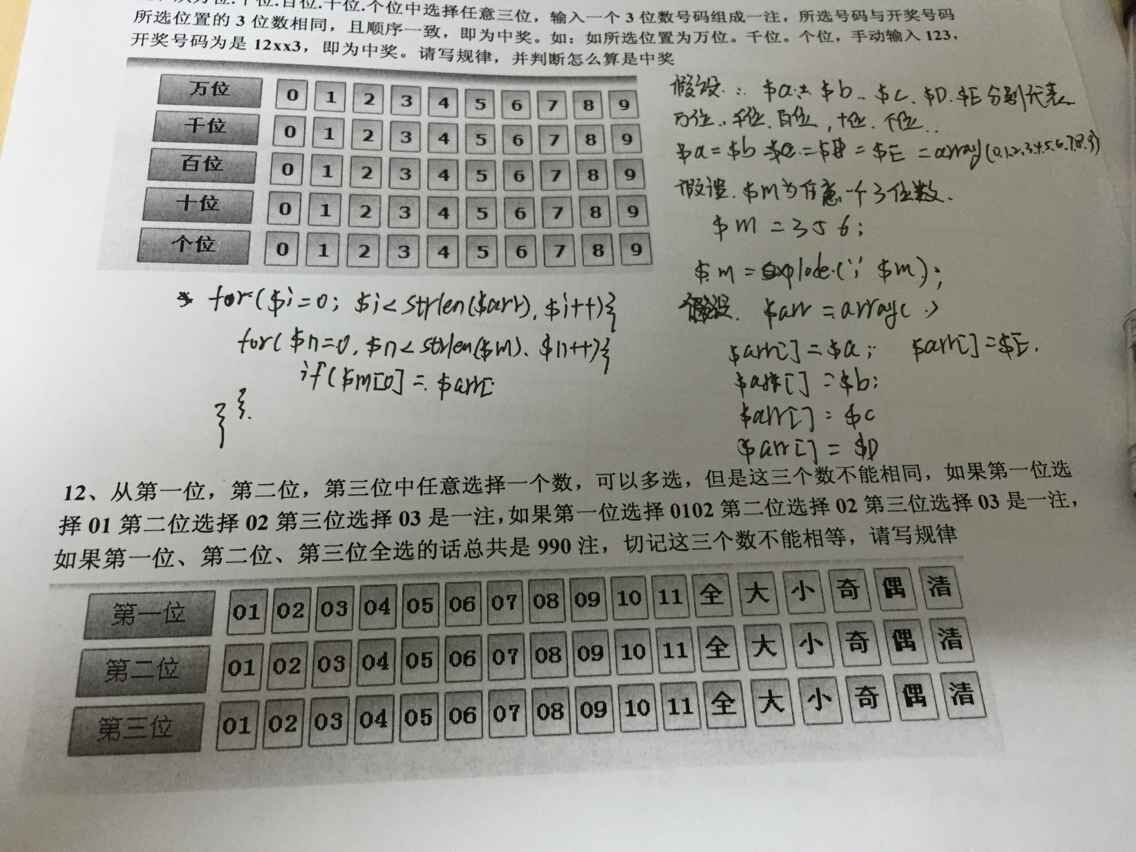 万位.千位.百位.十位.个位中选择任意三位，输入一个 3 位数号码组成一注，所选号码与开奖号码
所选位置的 3 位数相同，且顺序一致，即为中奖。如：如所选位置为万位。千位。个位，手动输入 123，
开奖号码为是 12xx3，即为中奖。请写规律，并判断怎么算是中奖
万位 0 1 2 3 4 5 6 7 8 9
千位 0 1 2 3 4 5 6 7 8 9
百位 0 1 2 3 4 5 6 7 8 9
十位 0 1 2 3 4 5 6 7 8 9
个位 0 1 2 3 4 5 6 7 8 9
假设: $a $b $c. $D. $E 分别代表
万位、千位.百位, 十位. 个位..
$a = $b = $c = $D = $E = array(0,1,2,3,4,5,6,7,8,9)
假设. $m为任意一个3位数.
$m = 356;
$m = explode('', $m);
假设. $arr = array( )
$arr[] = $a; $arr[] = $E.
$arr[] = $b;
$arr[] = $c
$arr[] = $D
for($i=0; $i<strlen($arr), $i++){
for($n=0, $n<strlen($m). $n++){
if($m[0] = $arr[
}
}
12、从第一位，第二位，第三位中任意选择一个数，可以多选，但是这三个数不能相同，如果第一位选
择 01 第二位选择 02 第三位选择 03 是一注，如果第一位选择 0102 第二位选择 02 第三位选择 03 是一注，
如果第一位、第二位、第三位全选的话总共是 990 注，切记这三个数不能相等，请写规律
第一位 01 02 03 04 05 06 07 08 09 10 11 全 大 小 奇 偶 清
第二位 01 02 03 04 05 06 07 08 09 10 11 全 大 小 奇 偶 清
第三位 01 02 03 04 05 06 07 08 09 10 11 全 大 小 奇 偶 清